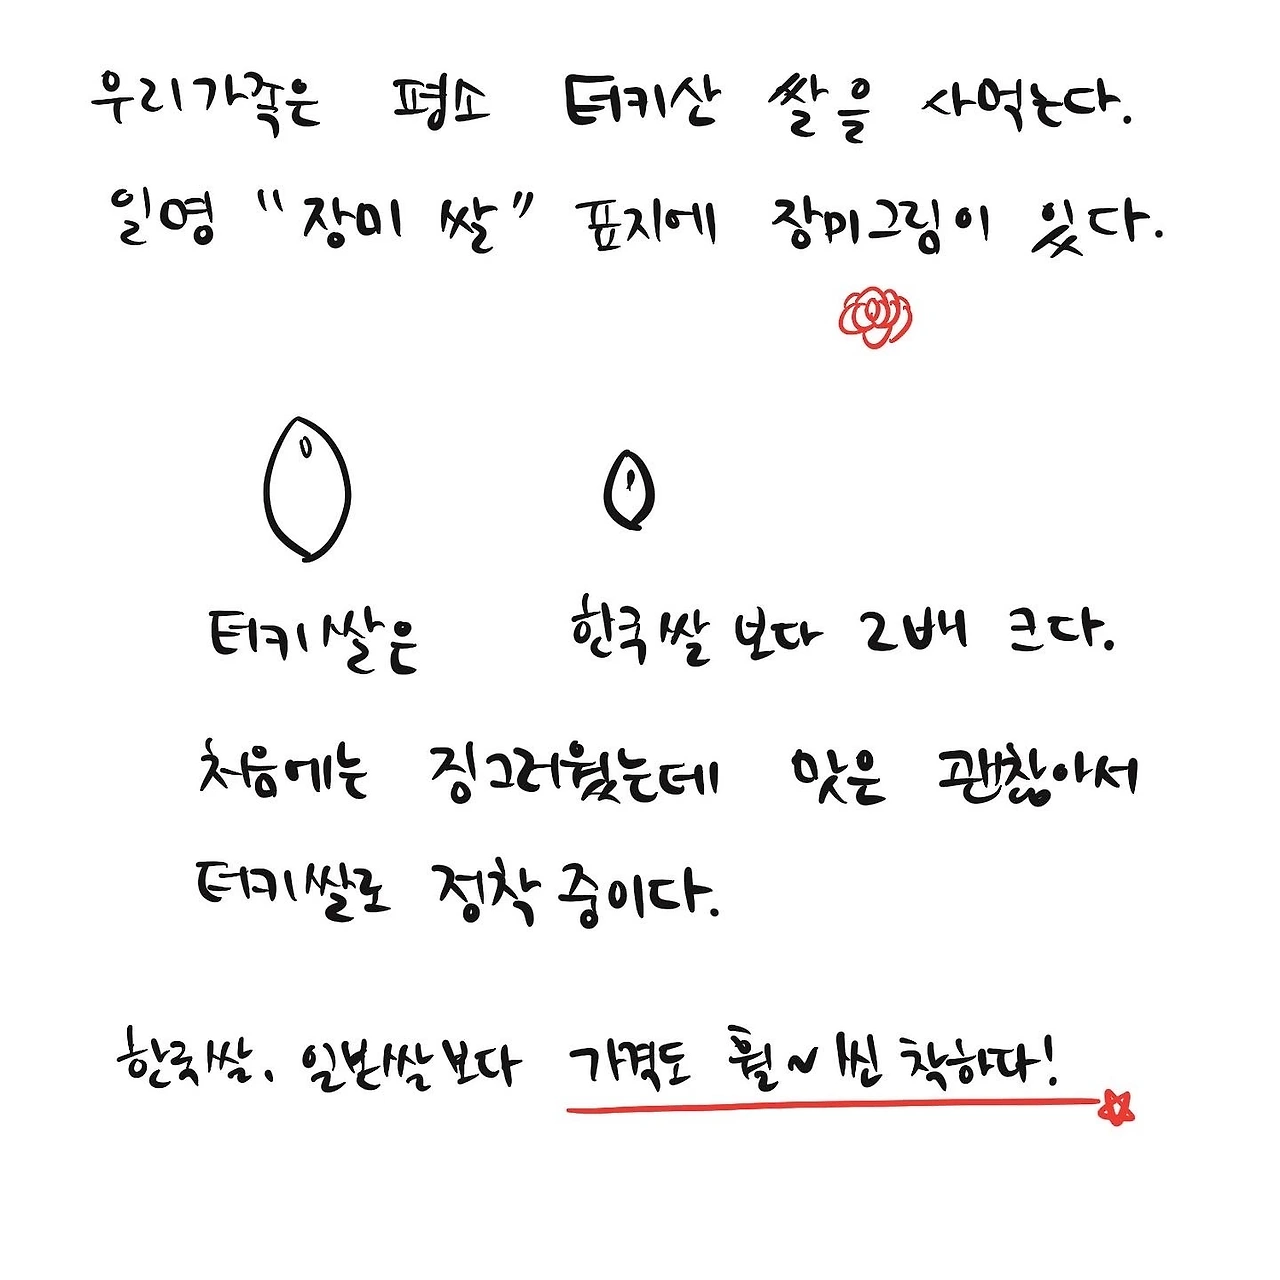 우리가족은 평소 터키산 쌀을 사먹는다.
일명 "장미 쌀" 표지에 장미그림이 있다.
터키쌀은 한국쌀보다 2배 크다.
처음에는 징그러웠는데 맛은 괜찮아서
터키쌀로 정착 중이다.
한국쌀. 일본쌀보다 가격도 훨~씬 착하다!